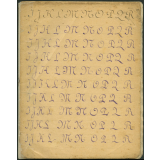 I J K L M N O P Q R
I J K L M N O P Q R
I J K L M N O P Q R
I J K L M N O P Q R
I J K L M N O P Q R
I J K L M N O P Q R
I J K L M N O P Q R
I J K L M N O P Q R
I J K L M N O P Q R